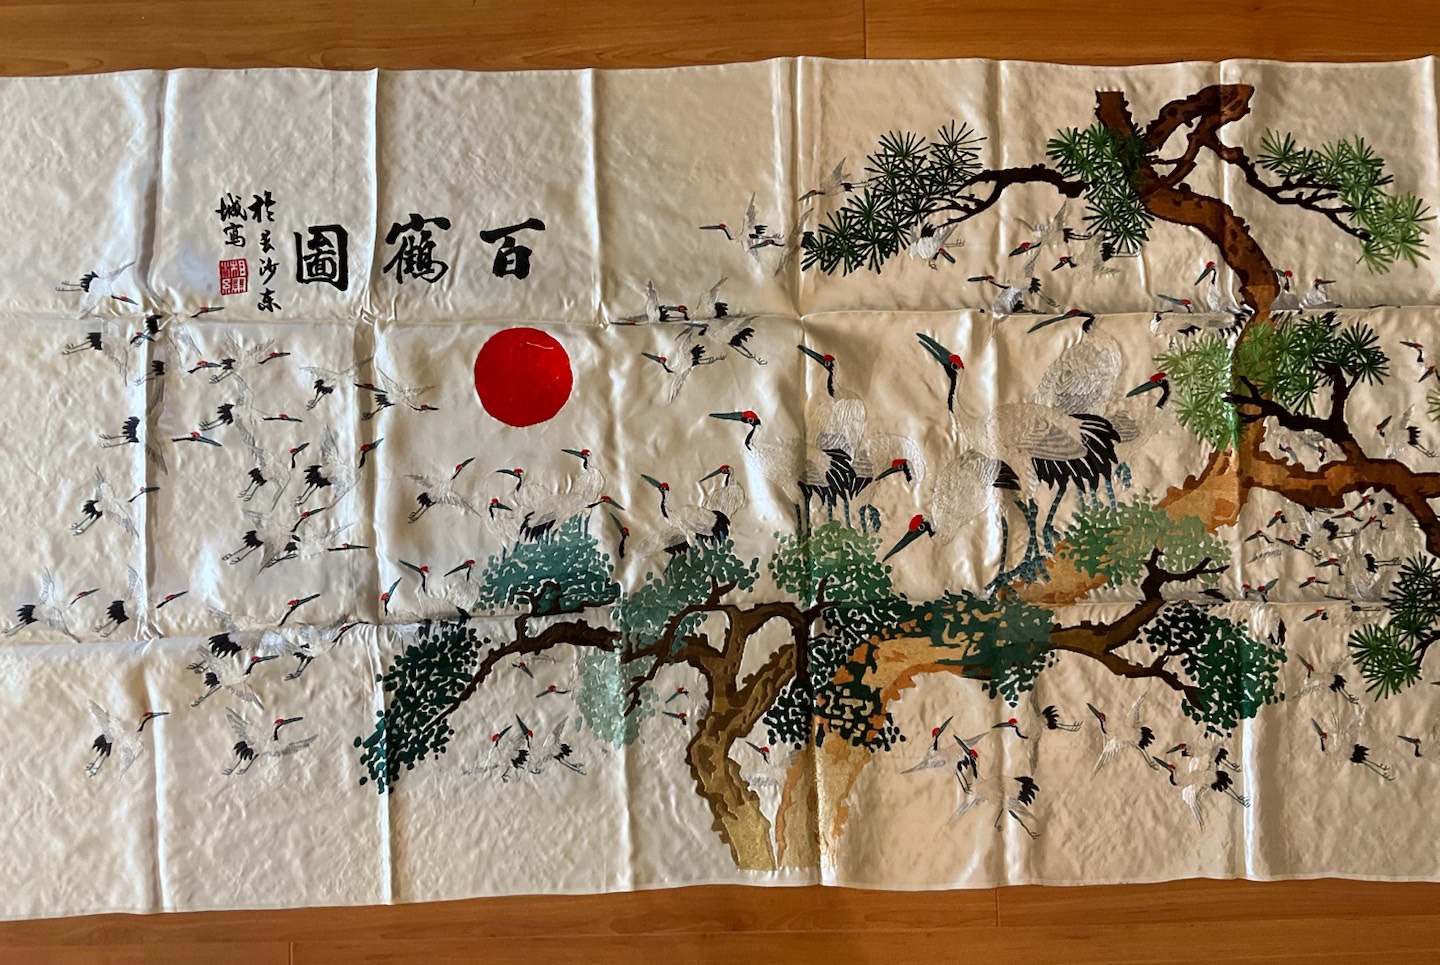 百鶴圖
於長沙东
城寫